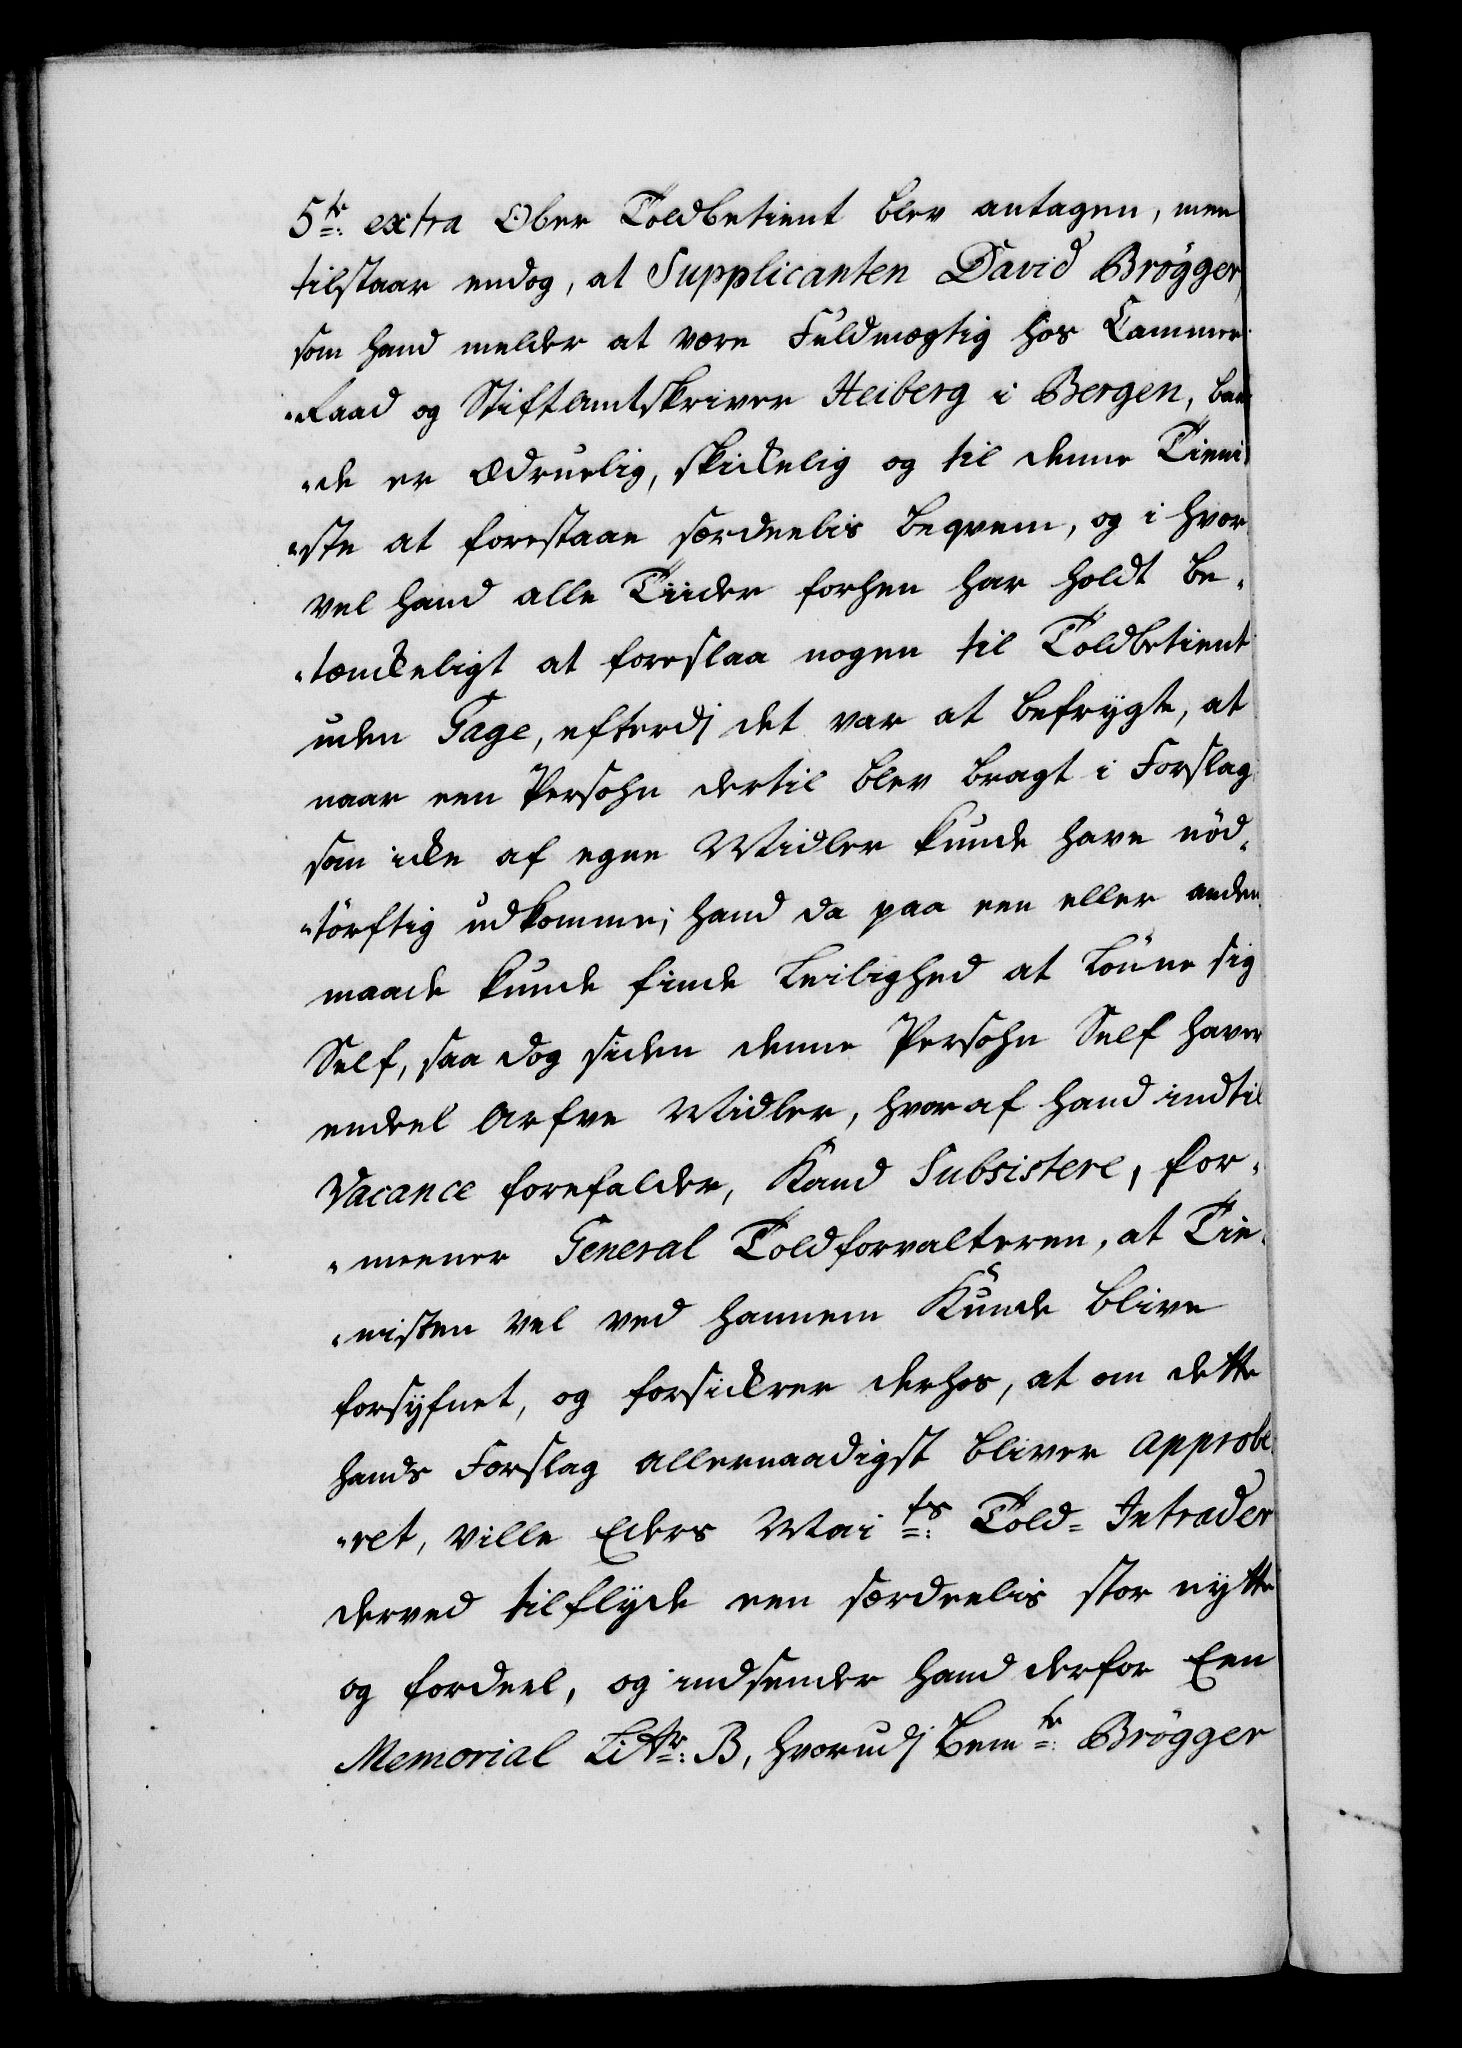 5te: extra Ober Toldbetient blev antagen, men
tilstaar endog, at Supplicanten David Brøgger,
som hand melder at være Fuldmægtig hos Cammer
-Raad og Stiftamtskriver Heiberg i Bergen, baa
-de er ædruelig, skickelig og til denne Tieni
-ste at forestaae særdeelis beqvem, og i hvor
vel hand alle Tiider forhen har holdt be-
-tænckeligt at foreslaa nogen til Toldbetient
uden Gage, efterdj det var at befrygte, at
naar een Persohn dertil blev bragt i Forslag
som icke af egne Midler kunde have nød-
-tørftig udkomme; hand da paa een eller anden
maade kunde finde Leilighed at Lønne sig
Self, saa dog siden denne Persohn Self haver
endeel Arfve Midler, hvoraf hand indtil
Vacance forefalder, Kand Subsistere, for-
-meener General Toldforvalteren, at Tie-
-nisten vel ved hannem Kunde blive
forsyfnet, og forsickrer derhos, at om dette
hands Forslag allernaadigst bliver approbe
-ret, ville Eders Mai ts: Told- Intrader
derved tilflyde een særdeelis stor nytte
og fordeel, og indsender hand derfor Een
Memorial Littr: B, hvorudj bem te: Brøgger